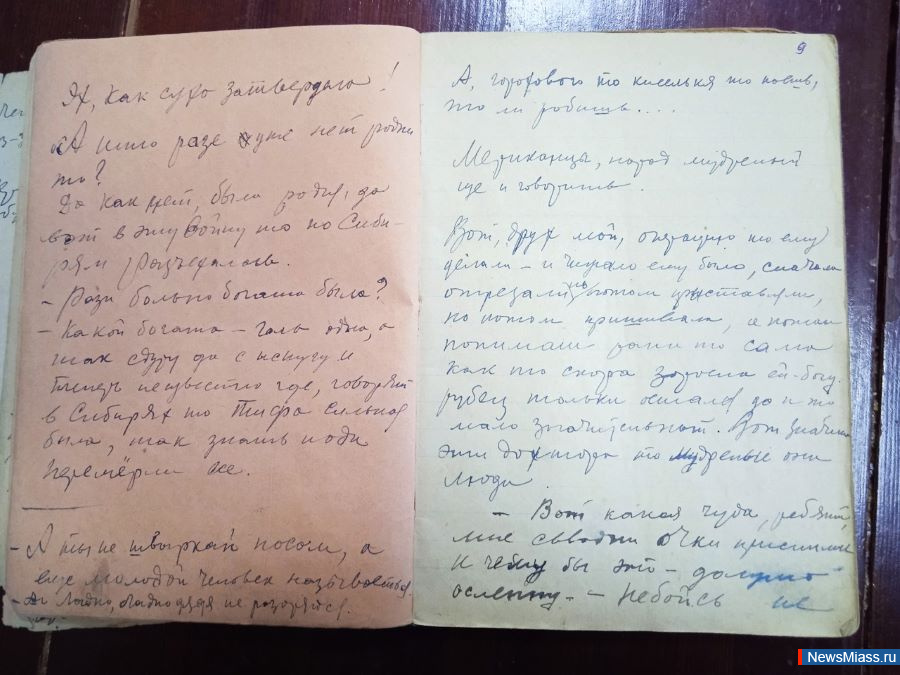 Ях, как сухо затвердело!
«А кто разе уже нет родни
то?
Да как нет, была родня, да
вот в эту войну то по Сиби-
рям разъехалась.
- Рази больно богата была?
- Какой богата - голь одна, а
так сдуру да с испугу и
теперь неизвестно где, говорят
в Сибирях то Тифа сильная
была, так знать поди
перемёрли все.
- А ты не швыркай носом, а
еще молодой человек называется.
- Ну ладно, ладно дядя не разоряйся.
9
А, горохового то киселька то поешь,
то ли робишь....
Мериканцы, народ мудреный
ще и говорить.
Вот, друг мой, операцию то ему
делали - и чирало ему было, сначала
отрезали, но потом приставляли,
но потом пришивали, а потом
понимаш рана то сама
как то скора заросла ей-богу.
рубец только осталси да и то
мало значительнай. Вот значит
эти доктора то мудреные они
люди.
- Вот какая чуда, ребята,
мне сводни очки прислали
к чему бы это -
ослепну. - Небойсь не
NewsMiass.ru